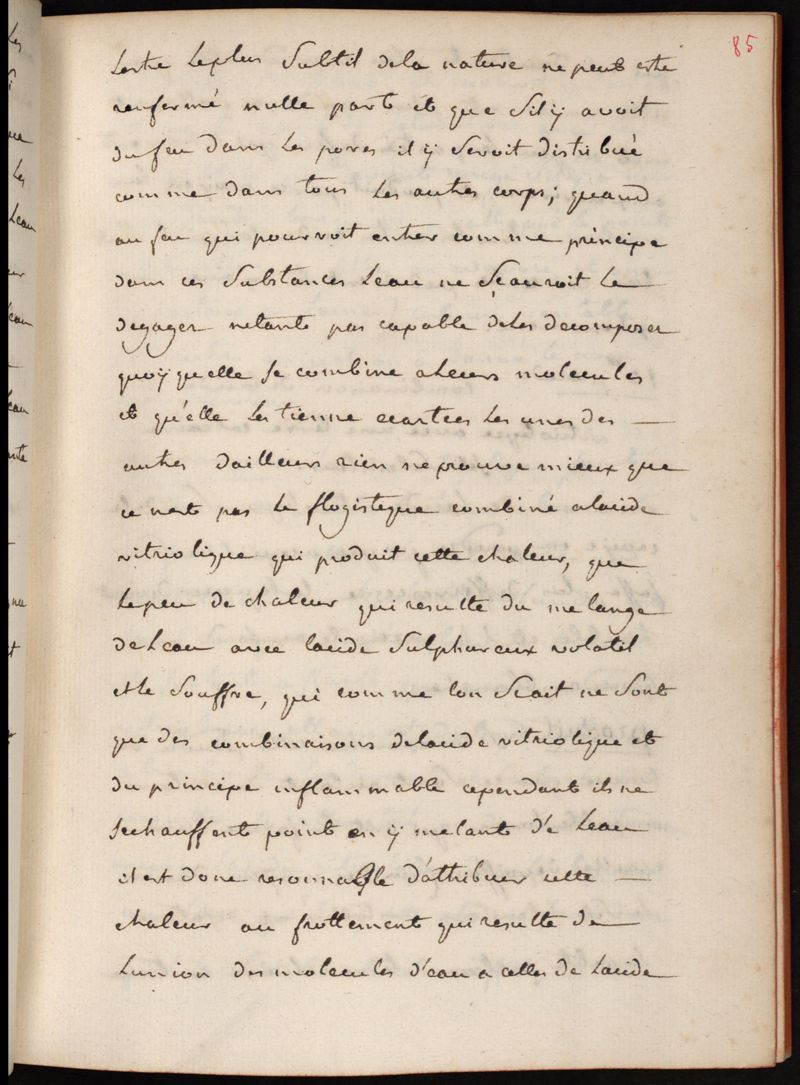 85
Lestre Leplus Subtil dela nature ne peut estre
renfermé nulle part et que Sil ÿ avoit
du feu dans Les pores il ÿ Seroit distribué
comme dans tous Les autres corps; quand
au feu qui pourroit entrer comme principe
dans ces Substances Leau ne Scauroit Le
degager netant pas capable deles decomposer
quoÿ quelle Se combine aLeurs molecules
et qu'elle Les tienne ecartées Les unes des
autres dailleurs rien ne prouve mieux que
ce nest pas Le flogistique combiné alacide
vitriolique qui produit cette chaleur, que
Lepeu de chaleur qui resulte du melange
deLeau avec lacide Sulphureux volatil
et Le Souffre, qui comme lon Scait ne Sont
que des combinaisons delacide vitriolique et
du principe inflammable cependant ils ne
Sechauffent point en ÿ melant de Leau
il est donc resonnable d'attribuer cette
chaleur au frottement qui resulte de
Lunion des molecules d'eau a celles de Lacide